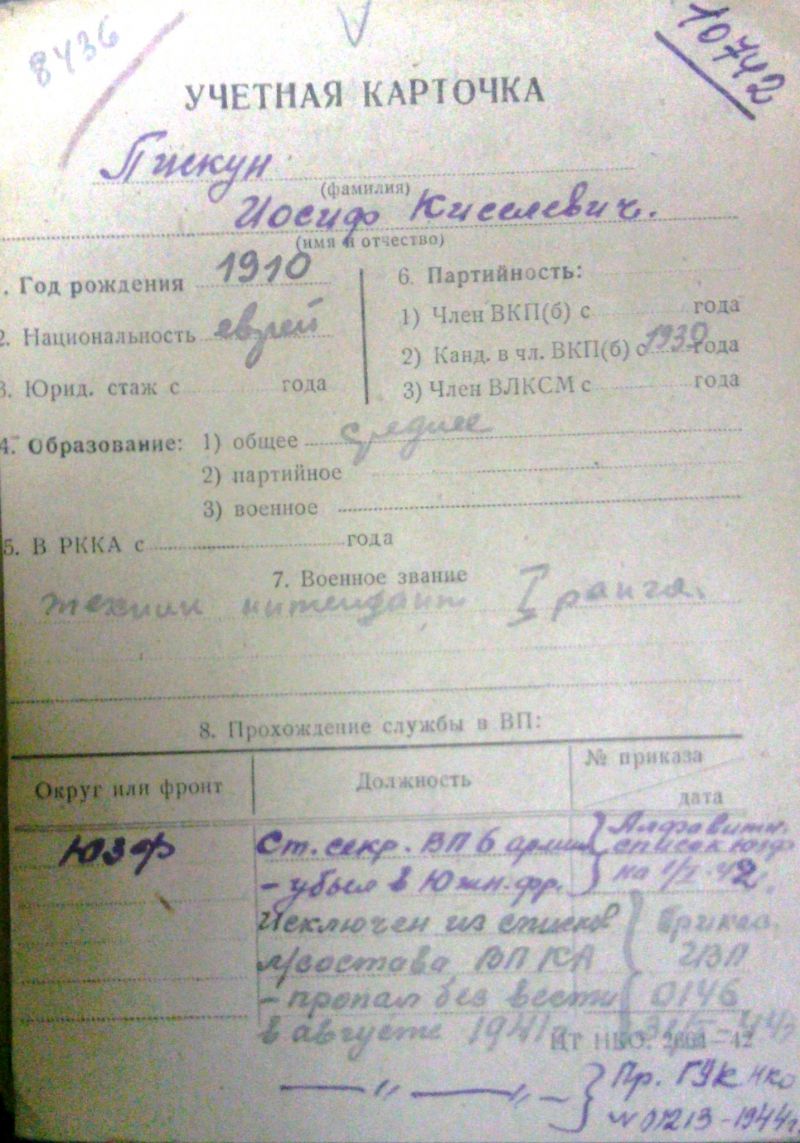 8436
10742
УЧЕТНАЯ КАРТОЧКА
Пискун
(фамилия)
Иосиф Киселевич.
(имя и отчество)
. Год рождения 1910
2. Национальность еврей
3. Юрид. стаж с года
6. Партийность:
1) Член ВКП(б) с года
2) Канд. в чл. ВКП(б) с 1939 года
3) Член ВЛКСМ с года
4. Образование: 1) общее среднее
2) партийное
3) военное
5. В РККА с года
7. Военное звание
техник интендант I ранга.
8. Прохождение службы в ВП:
Округ или фронт Должность № приказа
дата
ЮЗФ Ст. секр. ВП 6 армии Алфавитн.
список ЮЗФ
- убыл в Южн. фр. на 1/I-42.
Исключен из списков Приказ
л/состава ВП КА ГВП
- пропал без вести 0146
в августе 1941 г.
ЦТ НКО. 2604-42
— " — " — Пр. ГУК НКО
№ 01213-1944 г.